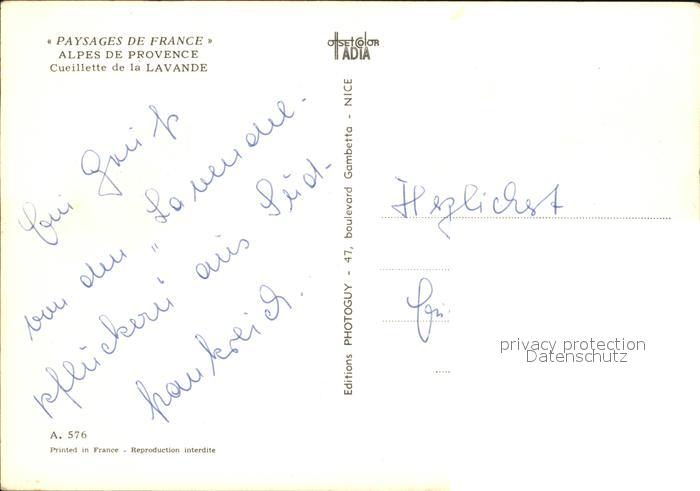 « PAYSAGES DE FRANCE »
ALPES DE PROVENCE
Cueillette de la LAVANDE
OffSETCOLOR
ADIA
Gruß
von den „Lavendel-
pflückern" aus Süd-
frankreich.
Editions PHOTOGUY - 47, boulevard Gambetta - NICE
Herzlichst
privacy protection
Datenschutz
A. 576
Printed in France - Reproduction interdite